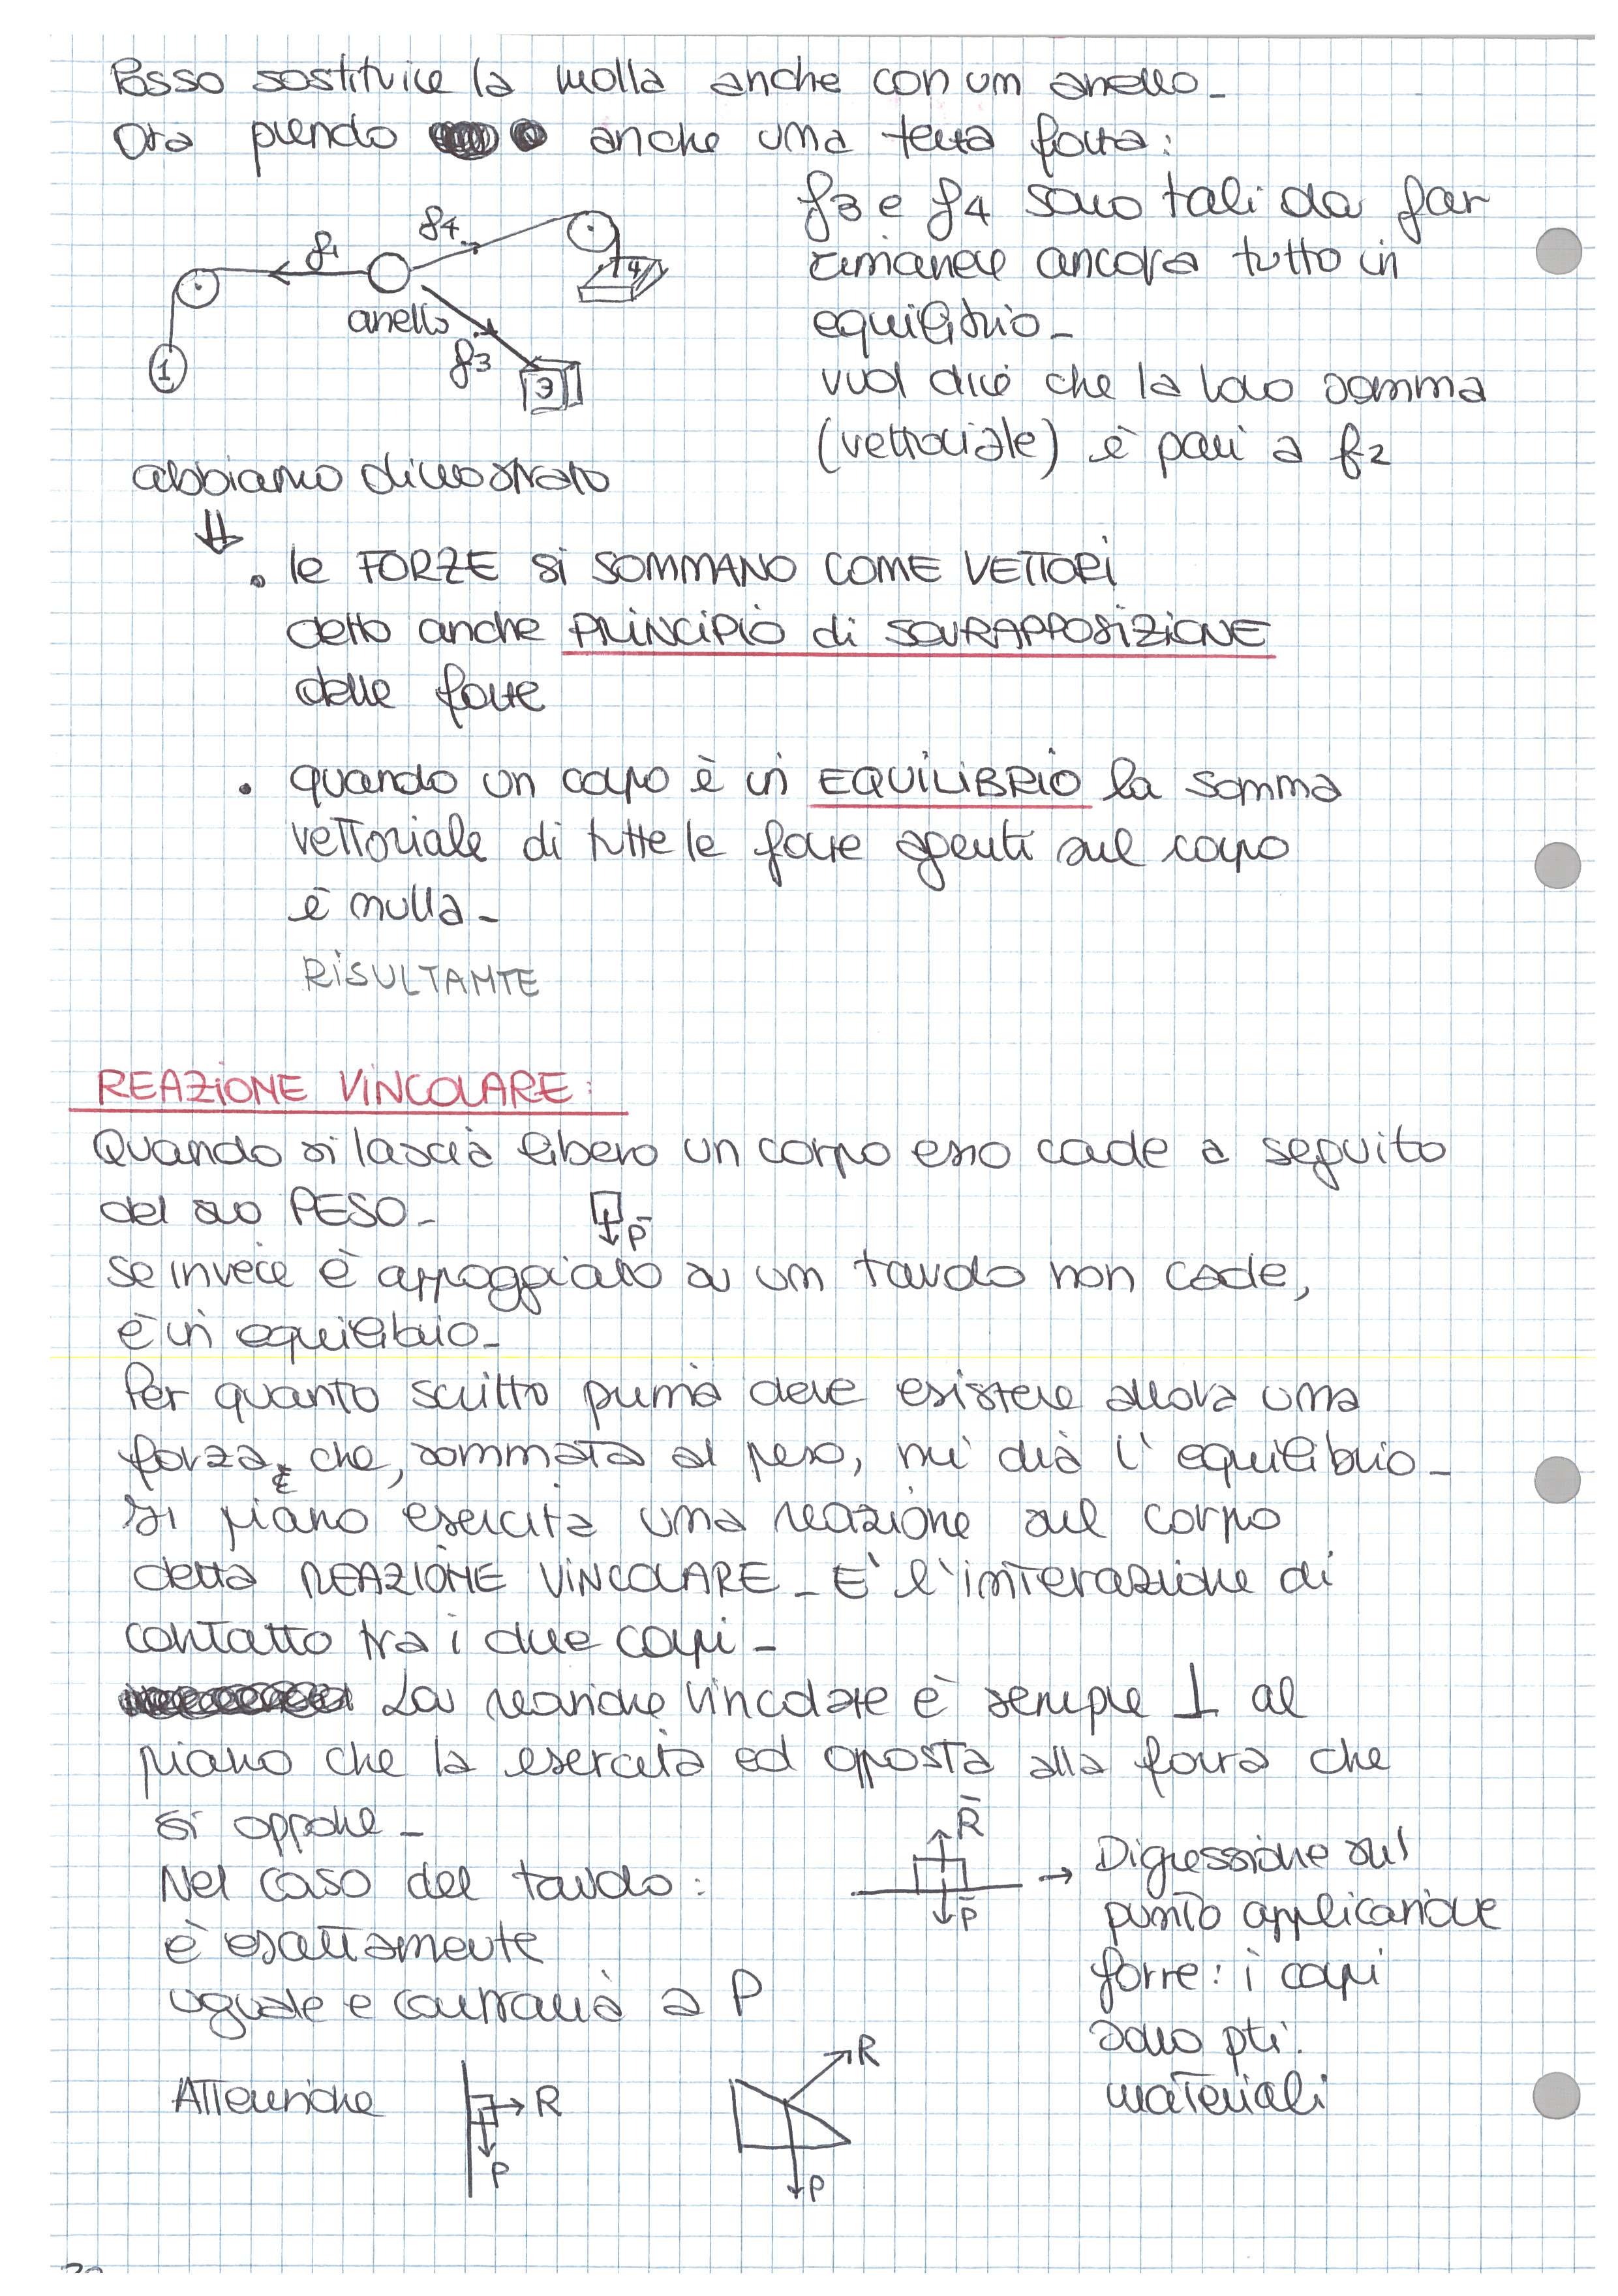 Posso sostituire la molla anche con un anello_
Ora prendo anche una terza forza:
f3 e f4 sono tali da far
rimanere ancora tutto in
equilibrio_
vuol dire che la loro somma
(vettoriale) è pari a f2
f1
f4
anello
f3
1
4
3
abbiamo dimostrato
⇓
• le FORZE si SOMMANO COME VETTORI
detto anche PRINCIPIO di SOVRAPPOSIZIONE
delle forze
• quando un corpo è in EQUILIBRIO la somma
vettoriale di tutte le forze agenti sul corpo
è nulla_
RISULTANTE
REAZIONE VINCOLARE:
Quando si lascia libero un corpo esso cade a seguito
del suo PESO_
P̄
Se invece è appoggiato su un tavolo non cade,
è in equilibrio_
Per quanto scritto prima deve esistere allora una
forza, che, sommata al peso, mi dia l'equilibrio_
Il piano esercita una reazione sul corpo
detta REAZIONE VINCOLARE_ E' l'interazione di
contatto tra i due corpi_
La reazione vincolare è sempre ⊥ al
piano che la esercita ed opposta alla forza che
si oppone_
Nel caso del tavolo:
è esattamente
uguale e contraria a P
R̄
P̄
→ Digressione sul
punto applicazione
forze: i corpi
sono pti.
materiali
Attenzione
R
P
R
P